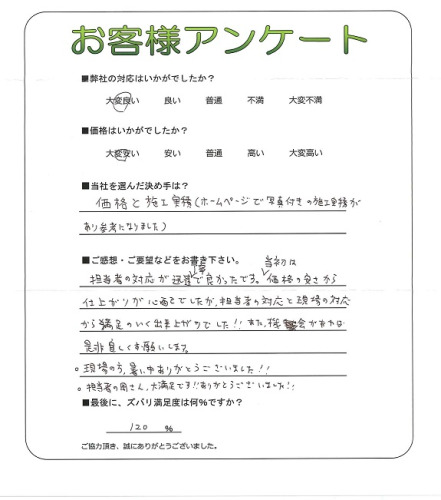 お客様アンケート
■弊社の対応はいかがでしたか?
大変良い 良い 普通 不満 大変不満
■価格はいかがでしたか?
大変安い 安い 普通 高い 大変高い
■当社を選んだ決め手は?
価格と施工実績(ホームページで写真付きの施工実績が
あり参考になりました)
■ご感想・ご要望などをお書き下さい。
担当者の対応が迅速丁寧で良かったです。当初は価格の安さから
仕上がりが心配でしたが、担当者の対応と現場の対応
から満足のいく出来上がりでした!!また、機会があれば
是非宜しくお願いします。
○現場の方、暑い中ありがとうございました!!
○担当者の さん、大満足です!!ありがとうございました!!
■最後に、ズバリ満足度は何%ですか?
120 %
ご協力頂き、誠にありがとうございました。